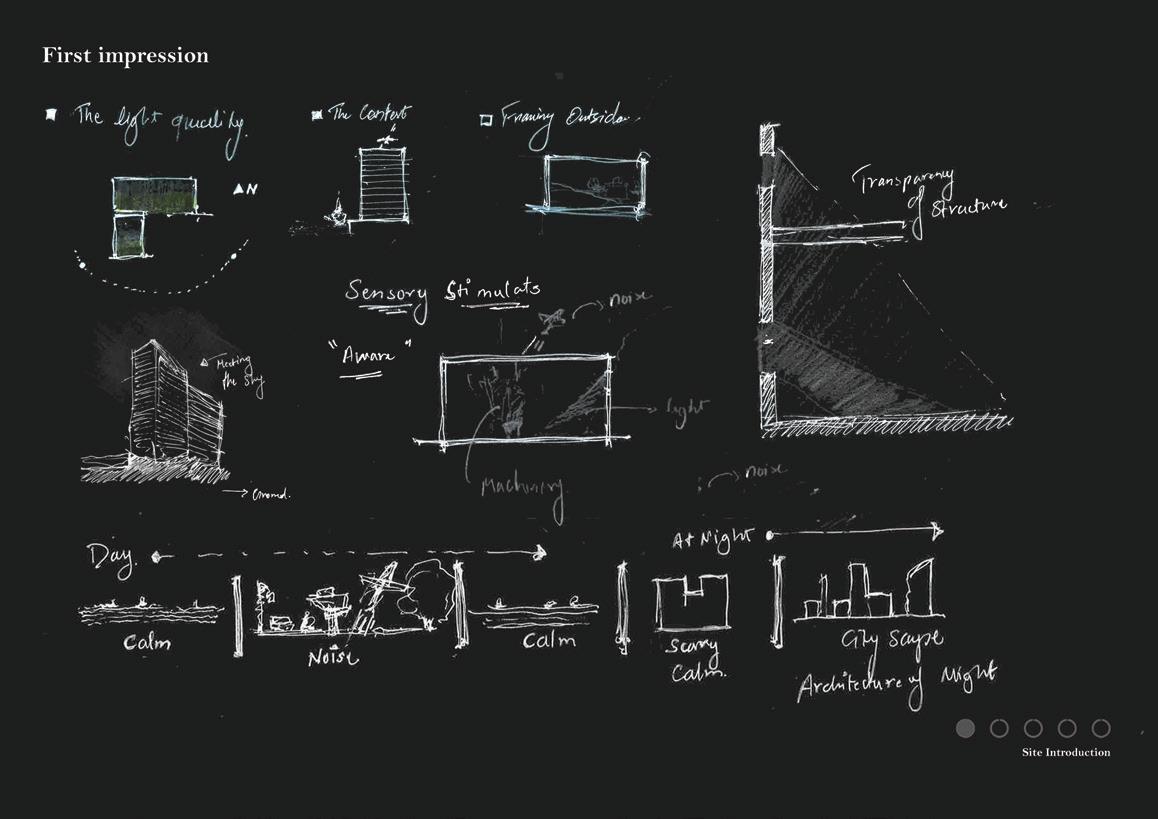 First impression
The light quality
The Context
Framing Outside
N
Transparency
of
Structure
Sensory Stimulats
noise
"Aware"
Meeting
the sky
light
Machinery
Ground.
noise
Day.
At Night
Calm
Noise
Calm
Scarry
Calm.
City Scape
Architecture of Night
Site Introduction